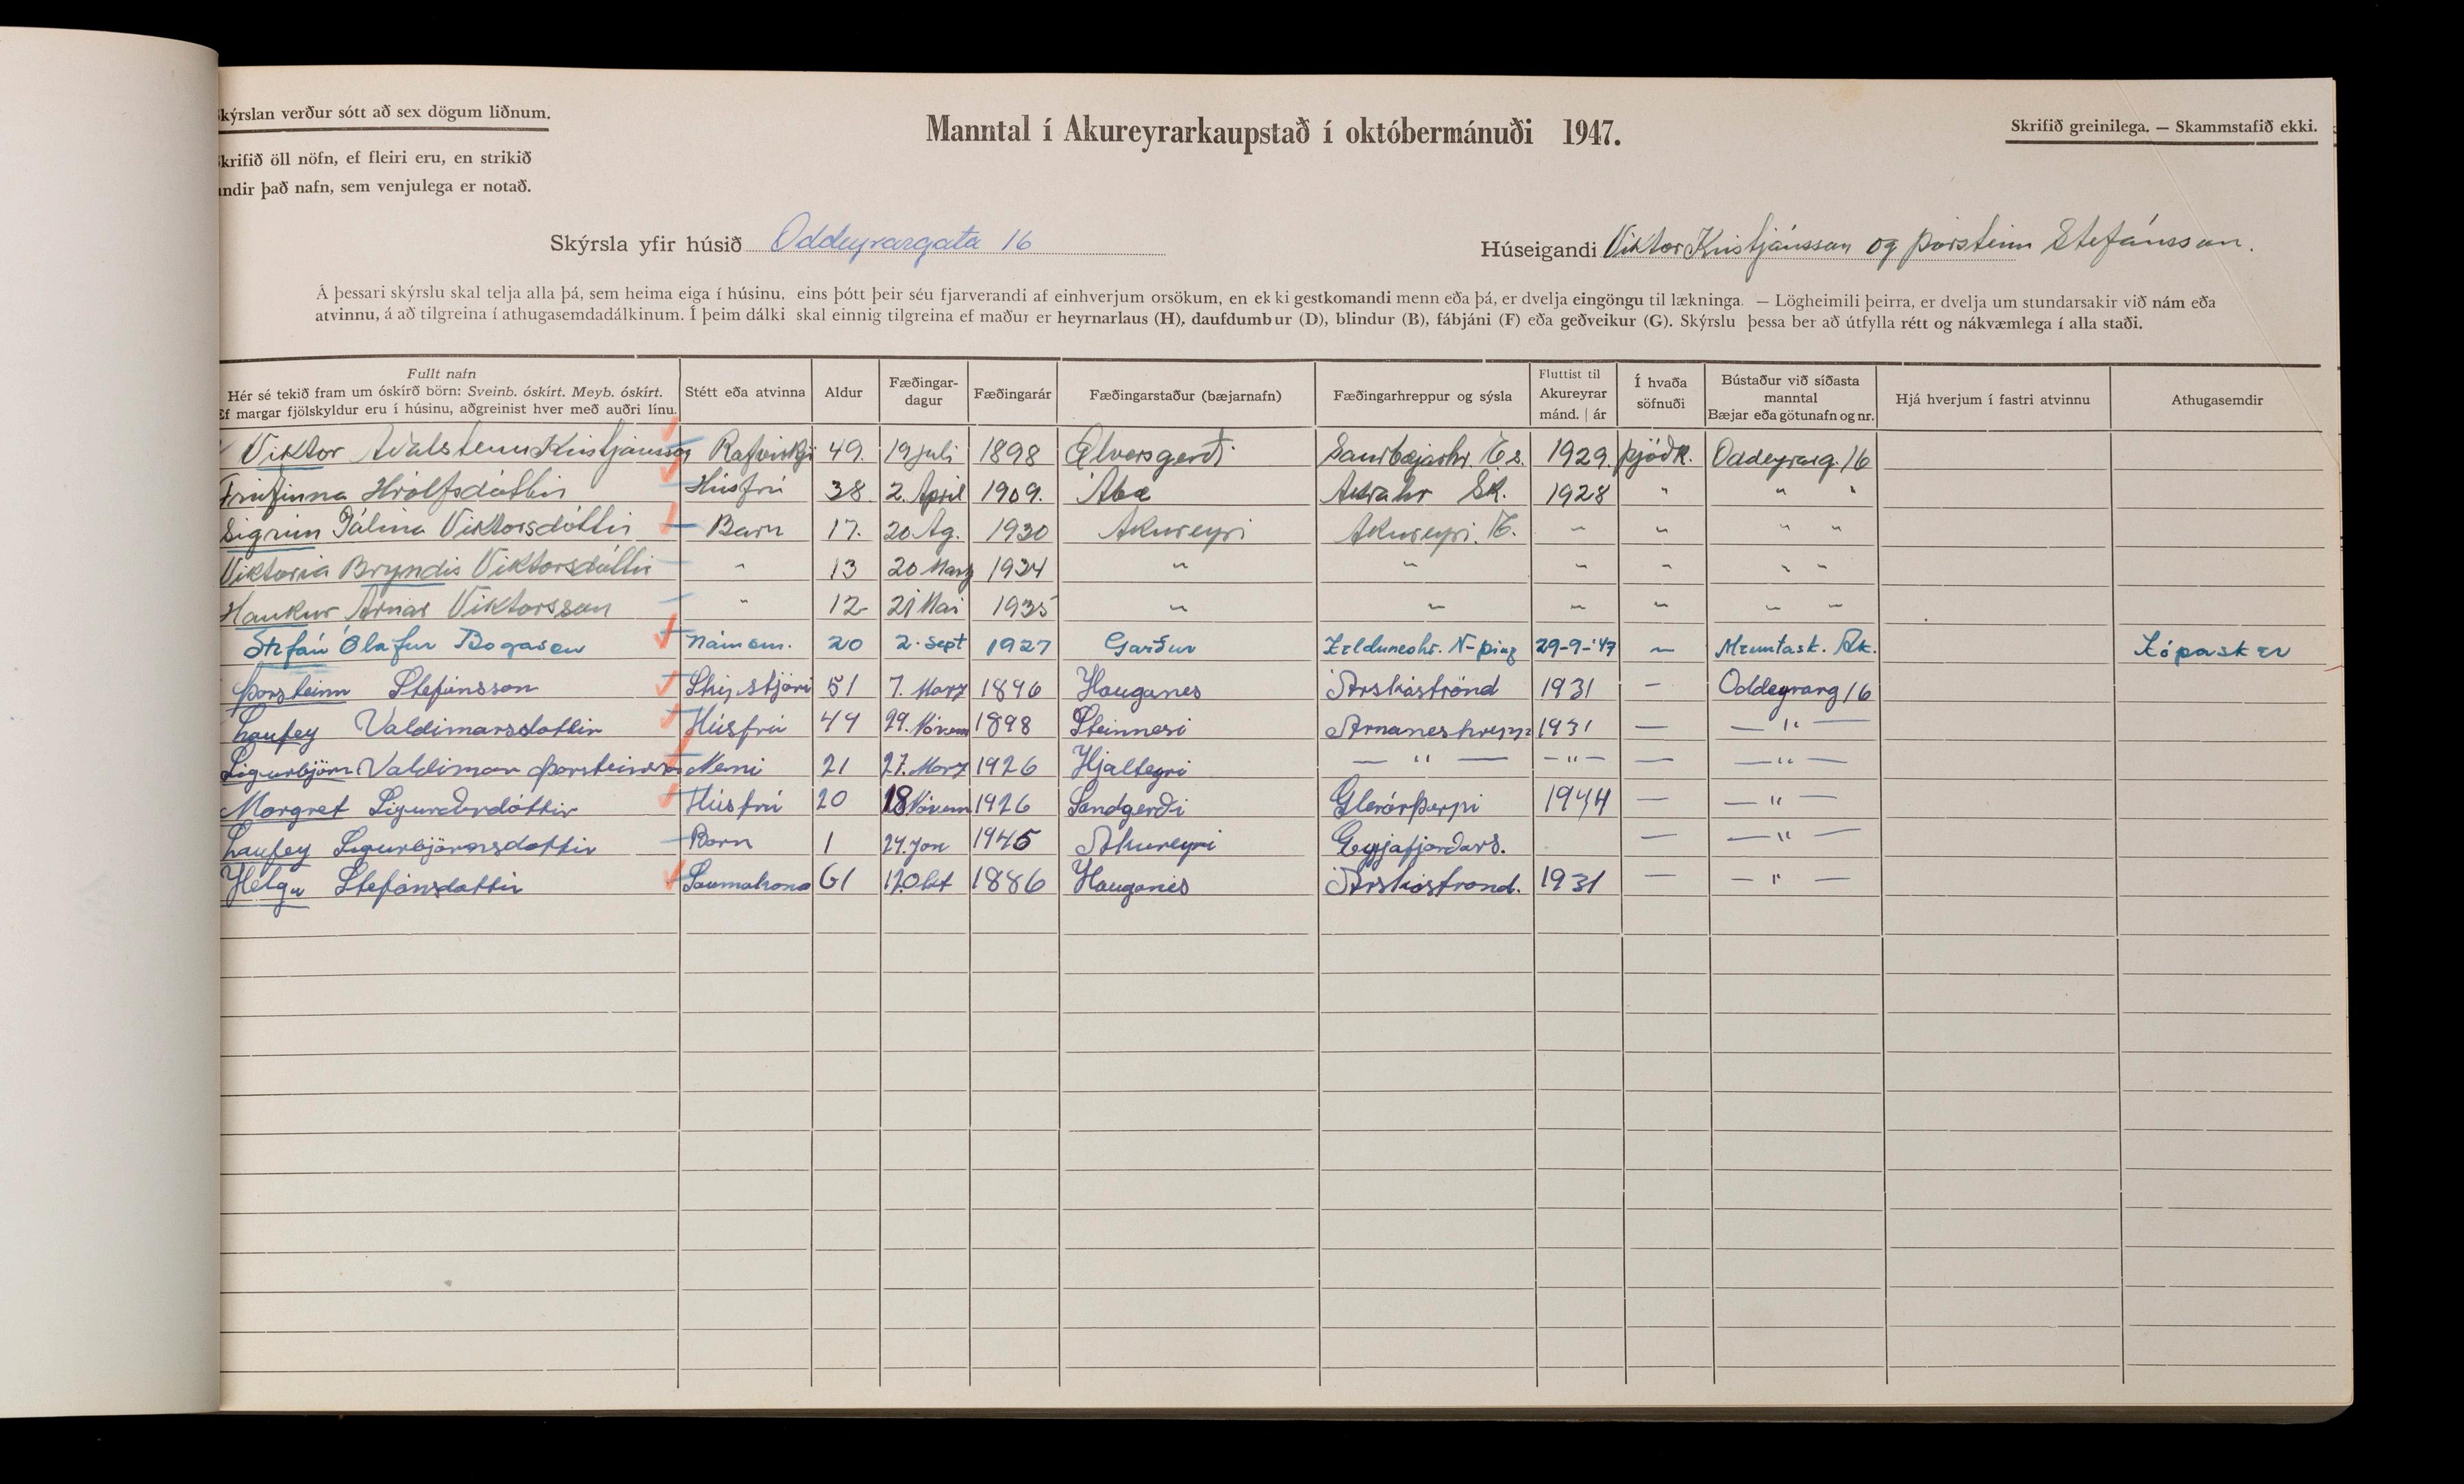 kýrslan verður sótt að sex dögum liðnum.
Manntal í Akureyrarkaupstað í októbermánuði 1947.
Skrifið greinilega. — Skammstafið ekki.
krifið öll nöfn, ef fleiri eru, en strikið
ndir það nafn, sem venjulega er notað.
Skýrsla yfir húsið Oddeyrargata 16
Húseigandi Viktor Kristjánsson og Þorsteinn Stefánsson.
Á þessari skýrslu skal telja alla þá, sem heima eiga í húsinu, eins þótt þeir séu fjarverandi af einhverjum orsökum, en ekki gestkomandi menn eða þá, er dvelja eingöngu til lækninga. — Lögheimili þeirra, er dvelja um stundarsakir við nám eða
atvinnu, á að tilgreina í athugasemdadálkinum. Í þeim dálki skal einnig tilgreina ef maður er heyrnarlaus (H), daufdumbur (D), blindur (B), fábjáni (F) eða geðveikur (G). Skýrslu þessa ber að útfylla rétt og nákvæmlega í alla staði.
Fullt nafn
Hér sé tekið fram um óskírð börn: Sveinb. óskírt. Meyb. óskírt.
Ef margar fjölskyldur eru í húsinu, aðgreinist hver með auðri línu.
Stétt eða atvinna
Aldur
Fæðingar-
dagur
Fæðingarár
Fæðingarstaður (bæjarnafn)
Fæðingarhreppur og sýsla
Fluttist til
Akureyrar
mánd. | ár
Í hvaða
söfnuði
Bústaður við síðasta
manntal
Bæjar eða götunafn og nr.
Hjá hverjum í fastri atvinnu
Athugasemdir
Viktor Aðalsteinn Kristjánsson Rafvirki 49. 19 juli 1898 Ölversgerði Saurbæjarhr. E.s. 1929. Þjóðk. Oddeyrarg. 16
Friðfinna Hrólfsdóttir Húsfrú 38. 2. April 1909. Ábæ Akrahr Sk. 1928 " " "
Sigrún Pálína Viktorsdóttir Barn 17. 20 Ag. 1930 Akureyri Akureyri. E. " " " "
Viktoria Bryndis Viktorsdóttir " 13 20 Marz 1934 " " " " " "
Haukur Arnar Viktorsson " 12 21 Mai 1935 " " " " " "
Stefán Ólafur Bogason Námsm. 20 2. sept 1927 Garður Kelduneshr. N-þing 29-9-'47 — Menntask. Ak. Kópasker
Þorsteinn Stefánsson Skipstjóri 51 7. Marz 1896 Hauganes Árskóströnd 1931 — Oddeyrarg 16
Laufey Valdimarsdottir Húsfrú 49 29. Nóvem 1898 Steinnesi Arnaneshrepp 1931 — — " —
Sigurbjörn Valdimar Þorsteinsson Nemi 21 27. Marz 1926 Hjalteyri — " — — " — — — " —
Margret Sigurðardóttir Húsfrú 20 18 Nóvem 1926 Sandgerði Glerárþorpi 1944 — — " —
Laufey Sigurbjörnsdottir Barn 1 24. jan 1946 Akureyri Eyjafjarðars. — — " —
Helga Stefánsdottir Saumakona 61 17. Okt 1886 Hauganes Árskóstrond. 1931 — — " —